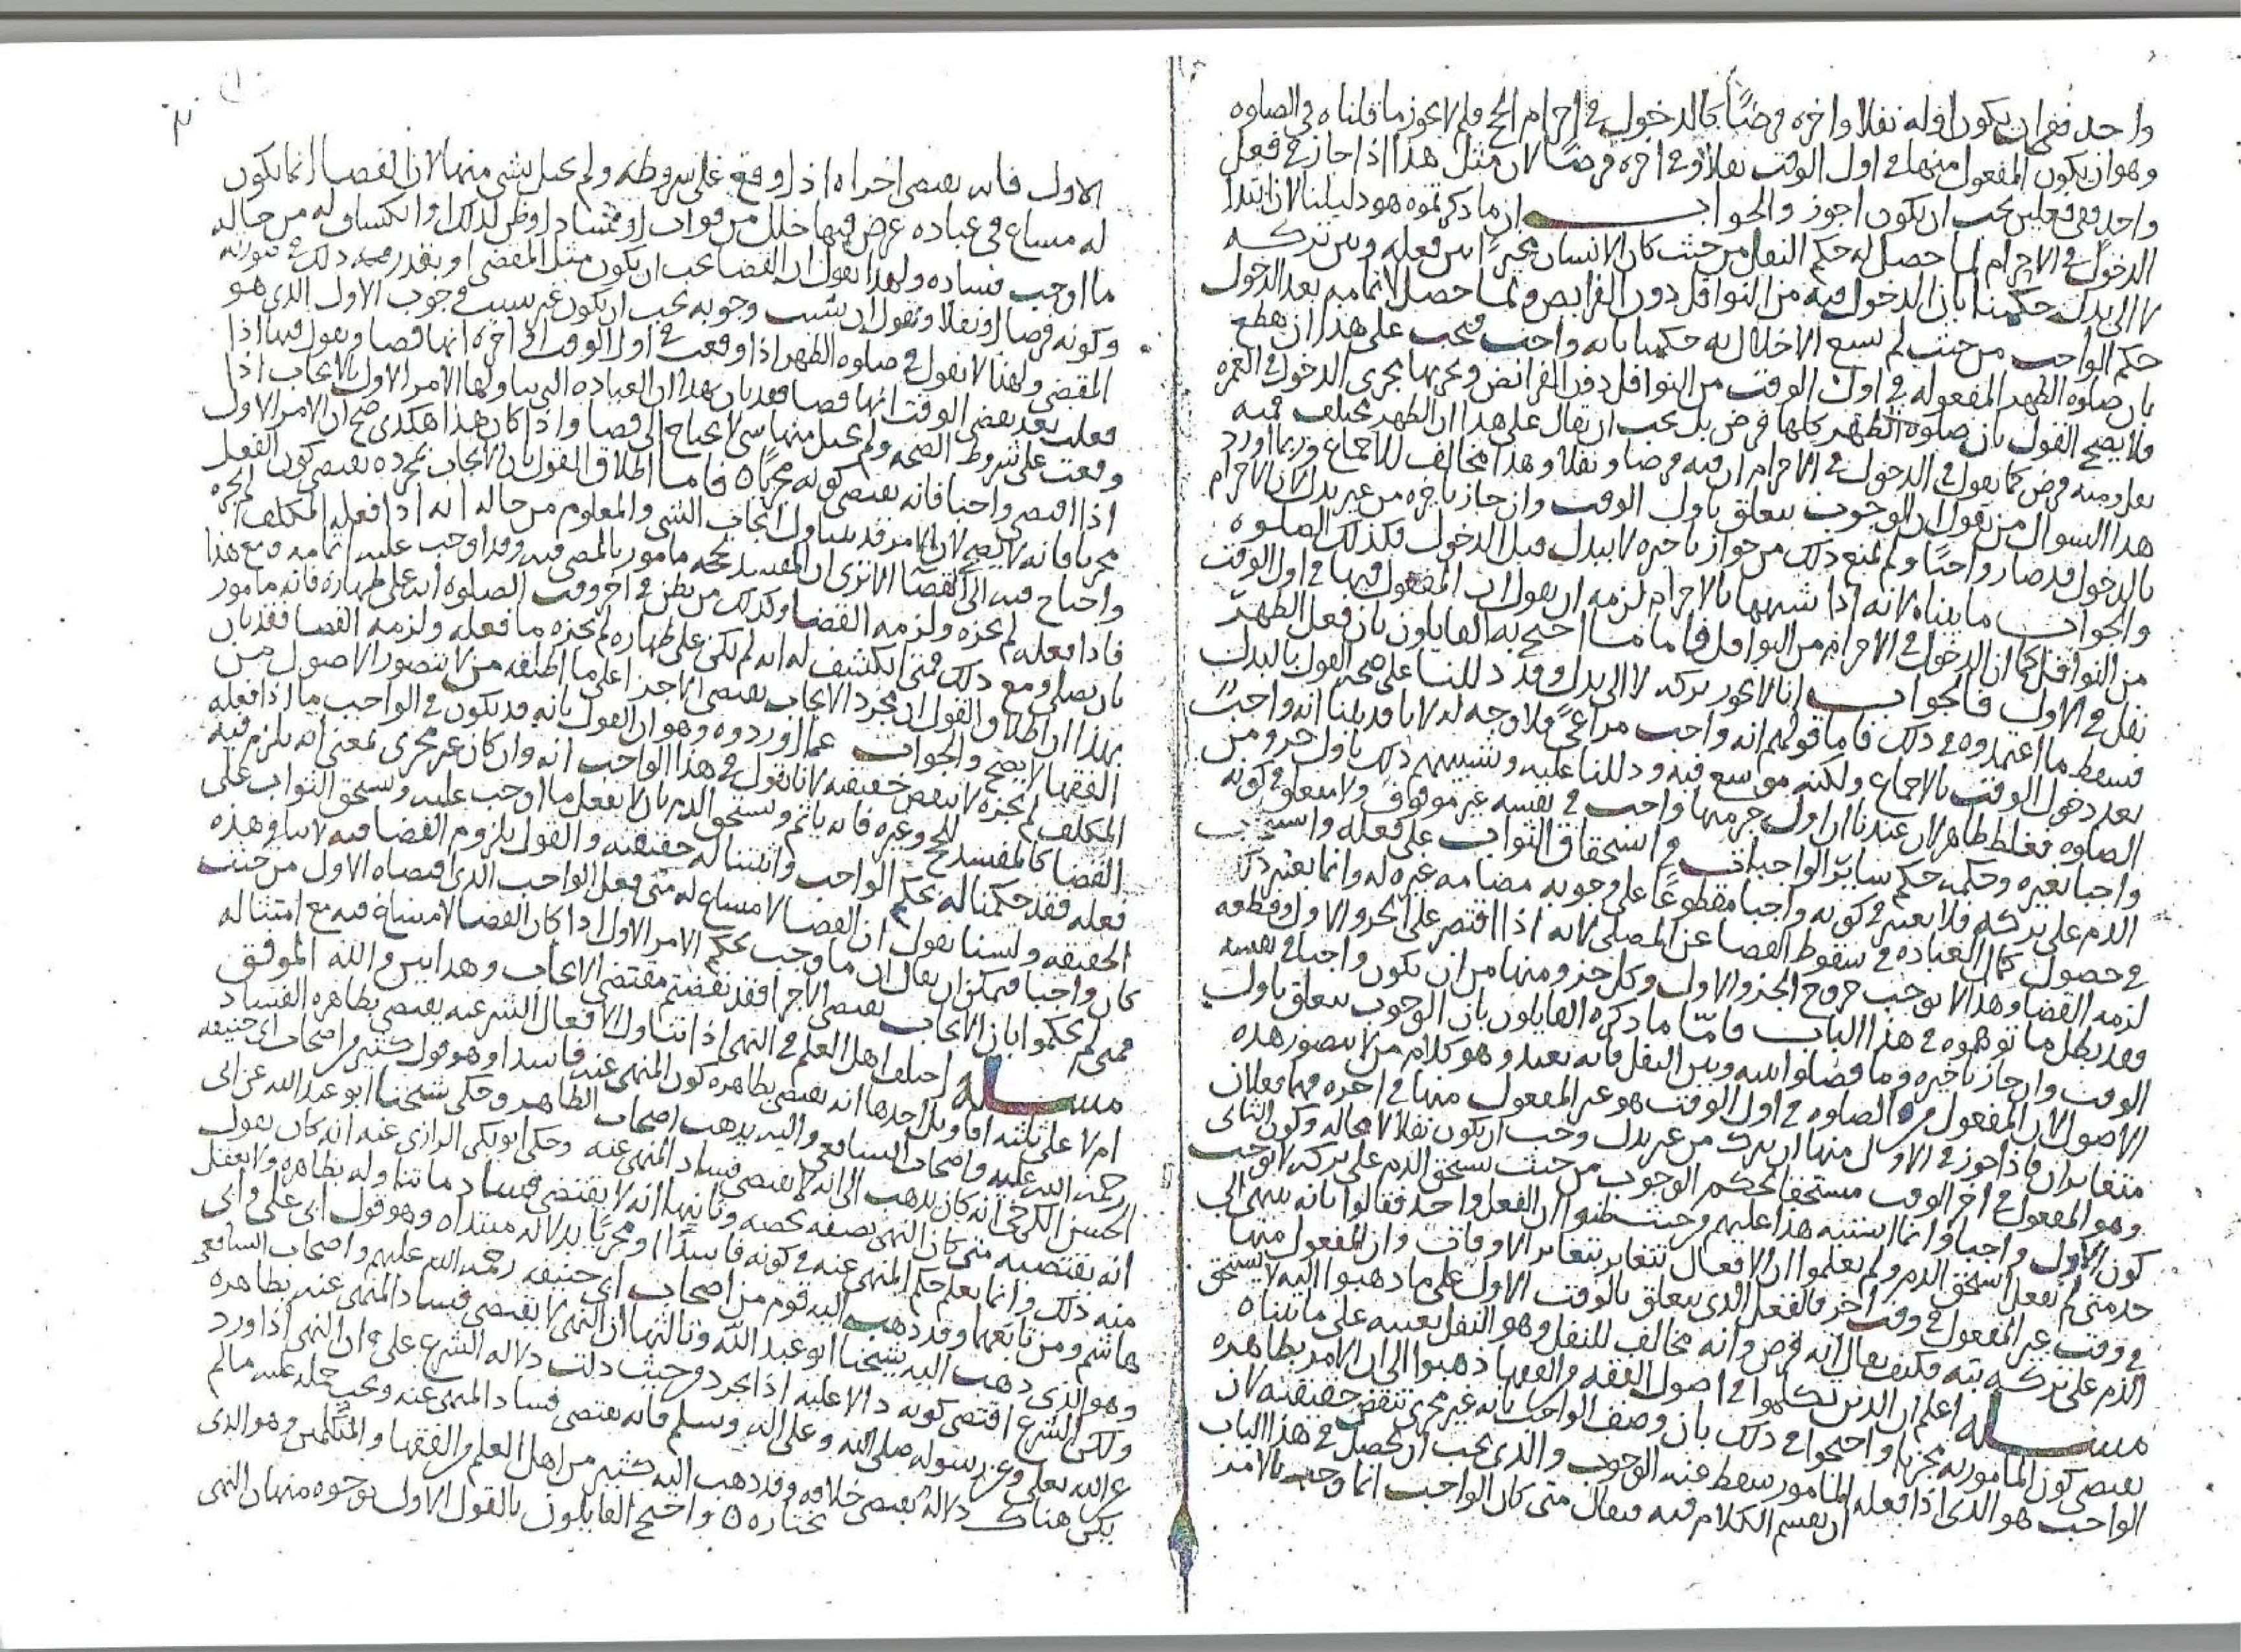 واحد ففي ان يكون اوله نفلا واخره فرضًا كالدخول في احرام الحج فلم لا يجوز ما قلناه في الصلوه
وهو ان يكون المفعول منها في اول الوقت نفلا وفي اخره فرضًا لان مثل هذا اذا جاز في فعل
واحد ففي فعلين يجب ان يكون اجوز والجواب ان ما ذكرتموه هو دليلنا لان ابتدا
الدخول في الاحرام لما حصل له حكم النفل من حيث كان الانسان مخيرًا بين فعله وبين تركه
لا الى بدل حكمنا بان الدخول فيه من النوافل دون الفرايض ولما حصل لاتمامه بعد الدخول
حكم الواجب من حيث لم يسع الاخلال به حكمنا بانه واجب فيجب على هذا ان يقطع
بان صلوه الظهر المفعوله في اول الوقت من النوافل دون الفرائض ونجريها مجرى الدخول في العمره
فلا يصح القول بان صلوه الظهر كلها فرض بل يجب ان يقال على هذا ان الظهر يختلف فيه
نفل ومنه فرض كما نقول في الدخول في الاحرام ان فيه فرضا ونفلا وهذا مخالف للاجماع وربما اورد
هذا السوال من يقول ان الوجوب يتعلق باول الوقت وان جاز تاخيره من غير بدل لان الاحرام
بالدخول قد صار واجبًا ولم يمنع ذلك من جواز تاخيره لا ببدل قبل الدخول فكذلك الصلوه
والجواب ما بيناه لانه اذا شبهها بالاحرام لزمه ان يقول ان المفعول فيها في اول الوقت
من النوافل كما ان الدخول في الاحرام من النوافل فاما ما احتج به القايلون بان فعل الظهر
نفل في الاول فالجواب انا لا نجوز تركه لا الى بدل وقد دللنا على صحه القول بالبدل
فسقط ما اعتمدوه في ذلك فاما قولهم انه واجب مراعىً فلا وجه له لانا قد بينا انه واجبٌ
بعد دخول الوقت بالاجماع ولكنه موسع فيه ودللنا عليه وتشبيههم ذلك باول جزو من
الصلوه فغلط ظاهر لان عندنا ان اول جزو منها واجب في نفسه غير موقوف ولا متعلق في كونه
واجبا بغيره وحكمه حكم ساير الواجبات في استحقاق الثواب على فعله واستحقاق
الذم على تركه فلا يعتبر في كونه واجبا مقطوعًا على وجوبه مضامه غيره له وانما يعتبر ذلك
في حصول كمال العباده في سقوط القضا عن المصلى لانه اذا اقتصر على الجزو الاول وقطعه
لزمه القضا وهذا لا يوجب خروج الجزو الاول وكل جزو منها من ان يكون واجبا في نفسه
فقد بطل ما توهموه في هذا الباب فامّا ما ذكره القايلون بان الوجوب يتعلق باول
الوقت وان جاز تاخيره وما فصلوا بينه وبين النفل فانه بعيد وهو كلام من لا يتصور هذه
الاصول لان المفعول من الصلوه في اول الوقت هو غير المفعول منها في اخره فهما فعلان
متغايران فاذا جوز في الاول منها ان يترك من غير بدل وجب ان يكون نفلا لا محاله وكون الثاني
وهو المفعول في اخر الوقت مستحقا لحكم الوجوب من حيث يستحق الذم على تركه لا يوجب
كون الاول واجبا وانما اشتبه هذا عليهم من حيث ظنوا ان الفعل واحد فقالوا بانه ينتهى الى
حد متى لم يفعل استحق الذم ولم يعلموا ان الافعال تتغاير بتغاير الاوقات وان المفعول منها
في وقت غير المفعول في وقت اخر فالفعل الذي يتعلق بالوقت الاول على ما ذهبوا اليه لا يستحق
الذم على تركه بته فكيف يقال انه فرض وانه مخالف للنفل وهو النفل بعينه على ما بيناه
مسله اعلم ان الذين تكلموا في اصول الفقه والفقها ذهبوا الى ان الامر بظاهره
يقتضى كون المامور به مجزيا واحتجوا في ذلك بان وصف الواجب بانه غير مجزى تنقض حقيقته لان
الواجب هو الذي اذا فعله المامور سقط عنه الوجوب والذي يجب ان يحصل في هذا الباب
ان يقسم الكلام فيه فيقال متى كان الواجب انما وجب بالامر
الاول فانه يقتضى اجزاه اذا وقع على شروطه ولم يخل بشى منها لان القضا انما يكون
له مساغ في عباده عرض فيها خلل من فوات او فساد او ظن لذلك وانكشاف له من حاله
ما اوجب فساده ولهذا نقول ان القضا يجب ان يكون مثل المقضى او يقدر فيه ذلك في صورته
وكونه فرضا او نفلا ونقول ان سبب وجوبه يجب ان يكون غير سبب في وجوب الاول الذي هو
المقضى ولهذا لا نقول في صلوه الظهر اذا وقعت في اول الوقت او في اخره انها قضا ونقول فيها اذا
فعلت بعد تقضى الوقت انها قضا فقد بان بهذا ان العباده التي يتناولها الامر الاول بالايجاب اذا
وقعت على شروط الصحه ولم يخل منها بشى لا يحتاج الى قضا واذا كان هذا هكذى صح ان الامر الاول
اذا اقتضى واجبا فانه يقتضى كونه مجزيًا ه فاما اطلاق القول بان الايجاب بمجرده يقتضى كون الفعل
مجزيا فانه لا يصح لان الامر قد يتناول ايجاب الشى والمعلوم من حاله انه اذا فعله المكلف لم يجزه
واحتاج فيه الى القضا الا ترى ان المفسد لحجه مامور بالمضى فيه وقد اوجب عليه اتمامه ومع هذا
فاذا فعله لم يجزه ولزمه القضا وكذلك من يظن في اخر وقت الصلوه انه على طهاره فانه مامور
بان يصلى ومع ذلك فمتى انكشف له انه لم يكن على طهاره لم يجزه ما فعله ولزمه القضا فقد بان
بهذا ان اطلاق القول ان مجرد الايجاب يقتضى الاجزا على ما اطلقه من لا يتصور الاصول من
الفقها لا يصح والجواب عما اوردوه وهو ان القول بانه قد يكون في الواجب ما اذا فعله
المكلف لم يجزه لا ينقض حقيقته لانا نقول في هذا الواجب انه وان كان غير مجزى بمعنى انه يلزم فيه
القضا كالمفسد للحج وغيره فانه ياثم ويستحق الذم بان لا يفعل ما اوجب عليه ويستحق الثواب على
فعله فقد حكمنا له بحكم الواجب واثبتنا له حقيقته والقول بلزوم القضا فيه لا ينافي هذه
الحقيقه ولسنا نقول ان القضا لا مساغ له متى فعل الواجب الذي اقتضاه الاول من حيث
كان واجبا فيمكن ان يقال ان ما وجب بحكم الامر الاول اذا كان القضا لا مساغ فيه مع امتثاله
فمتى لم يحكموا بان الايجاب يقتضى الاجزا فقد نقضتم مقتضى الايجاب وهذا بين والله الموفق
مسله اختلف اهل العلم في النهى اذا تناول الافعال الشرعيه يقتضى بظاهره الفساد
ام لا على ثلثه اقاويل احدها انه يقتضى بظاهره كون المنهى عنه فاسدا وهو قول كثير من اصحاب ابي حنيفه
رحمه الله عليه واصحاب الشافعي واليه يذهب اصحاب الظاهر وحكى شيخنا ابو عبد الله عن ابي
الحسن الكرخي انه كان يذهب الى انه لا يقتضى فساد المنهى عنه وحكى ابو بكر الرازي عنه انه كان يقول
انه يقتضيه متى كان النهى بصفه تخصه وثانيها انه لا يقتضى فساد ما تناوله بظاهره ولا يعقل
منه ذلك وانما يعلم حكم المنهى عنه في كونه فاسدًا او مجزيًا بدلاله مبتداه وهو قول ابي علي وابي
هاشم ومن تابعهما وقد ذهب اليه قوم من اصحاب ابي حنيفه رحمه الله عليهم واصحاب الشافعي
وهو الذي ذهب اليه شيخنا ابو عبد الله وثالثها ان النهى لا يقتضى فساد المنهى عنه بظاهره
ولكن الشرع اقتضى كونه دالا عليه اذا تجرد من حيث دلت دلاله الشرع على ان النهى اذا ورد
عن الله تعلى وعن رسوله صلى الله وعلى اله وسلم فانه يقتضى فساد المنهى عنه ويجب حمله عليه ما لم
يكن هناك دلاله تقتضى خلافه وقد ذهب اليه كثير من اهل العلم من الفقها والمتكلمين وهو الذي
نختاره ه واحتج القايلون بالقول الاول بوجوه منها ان النهى